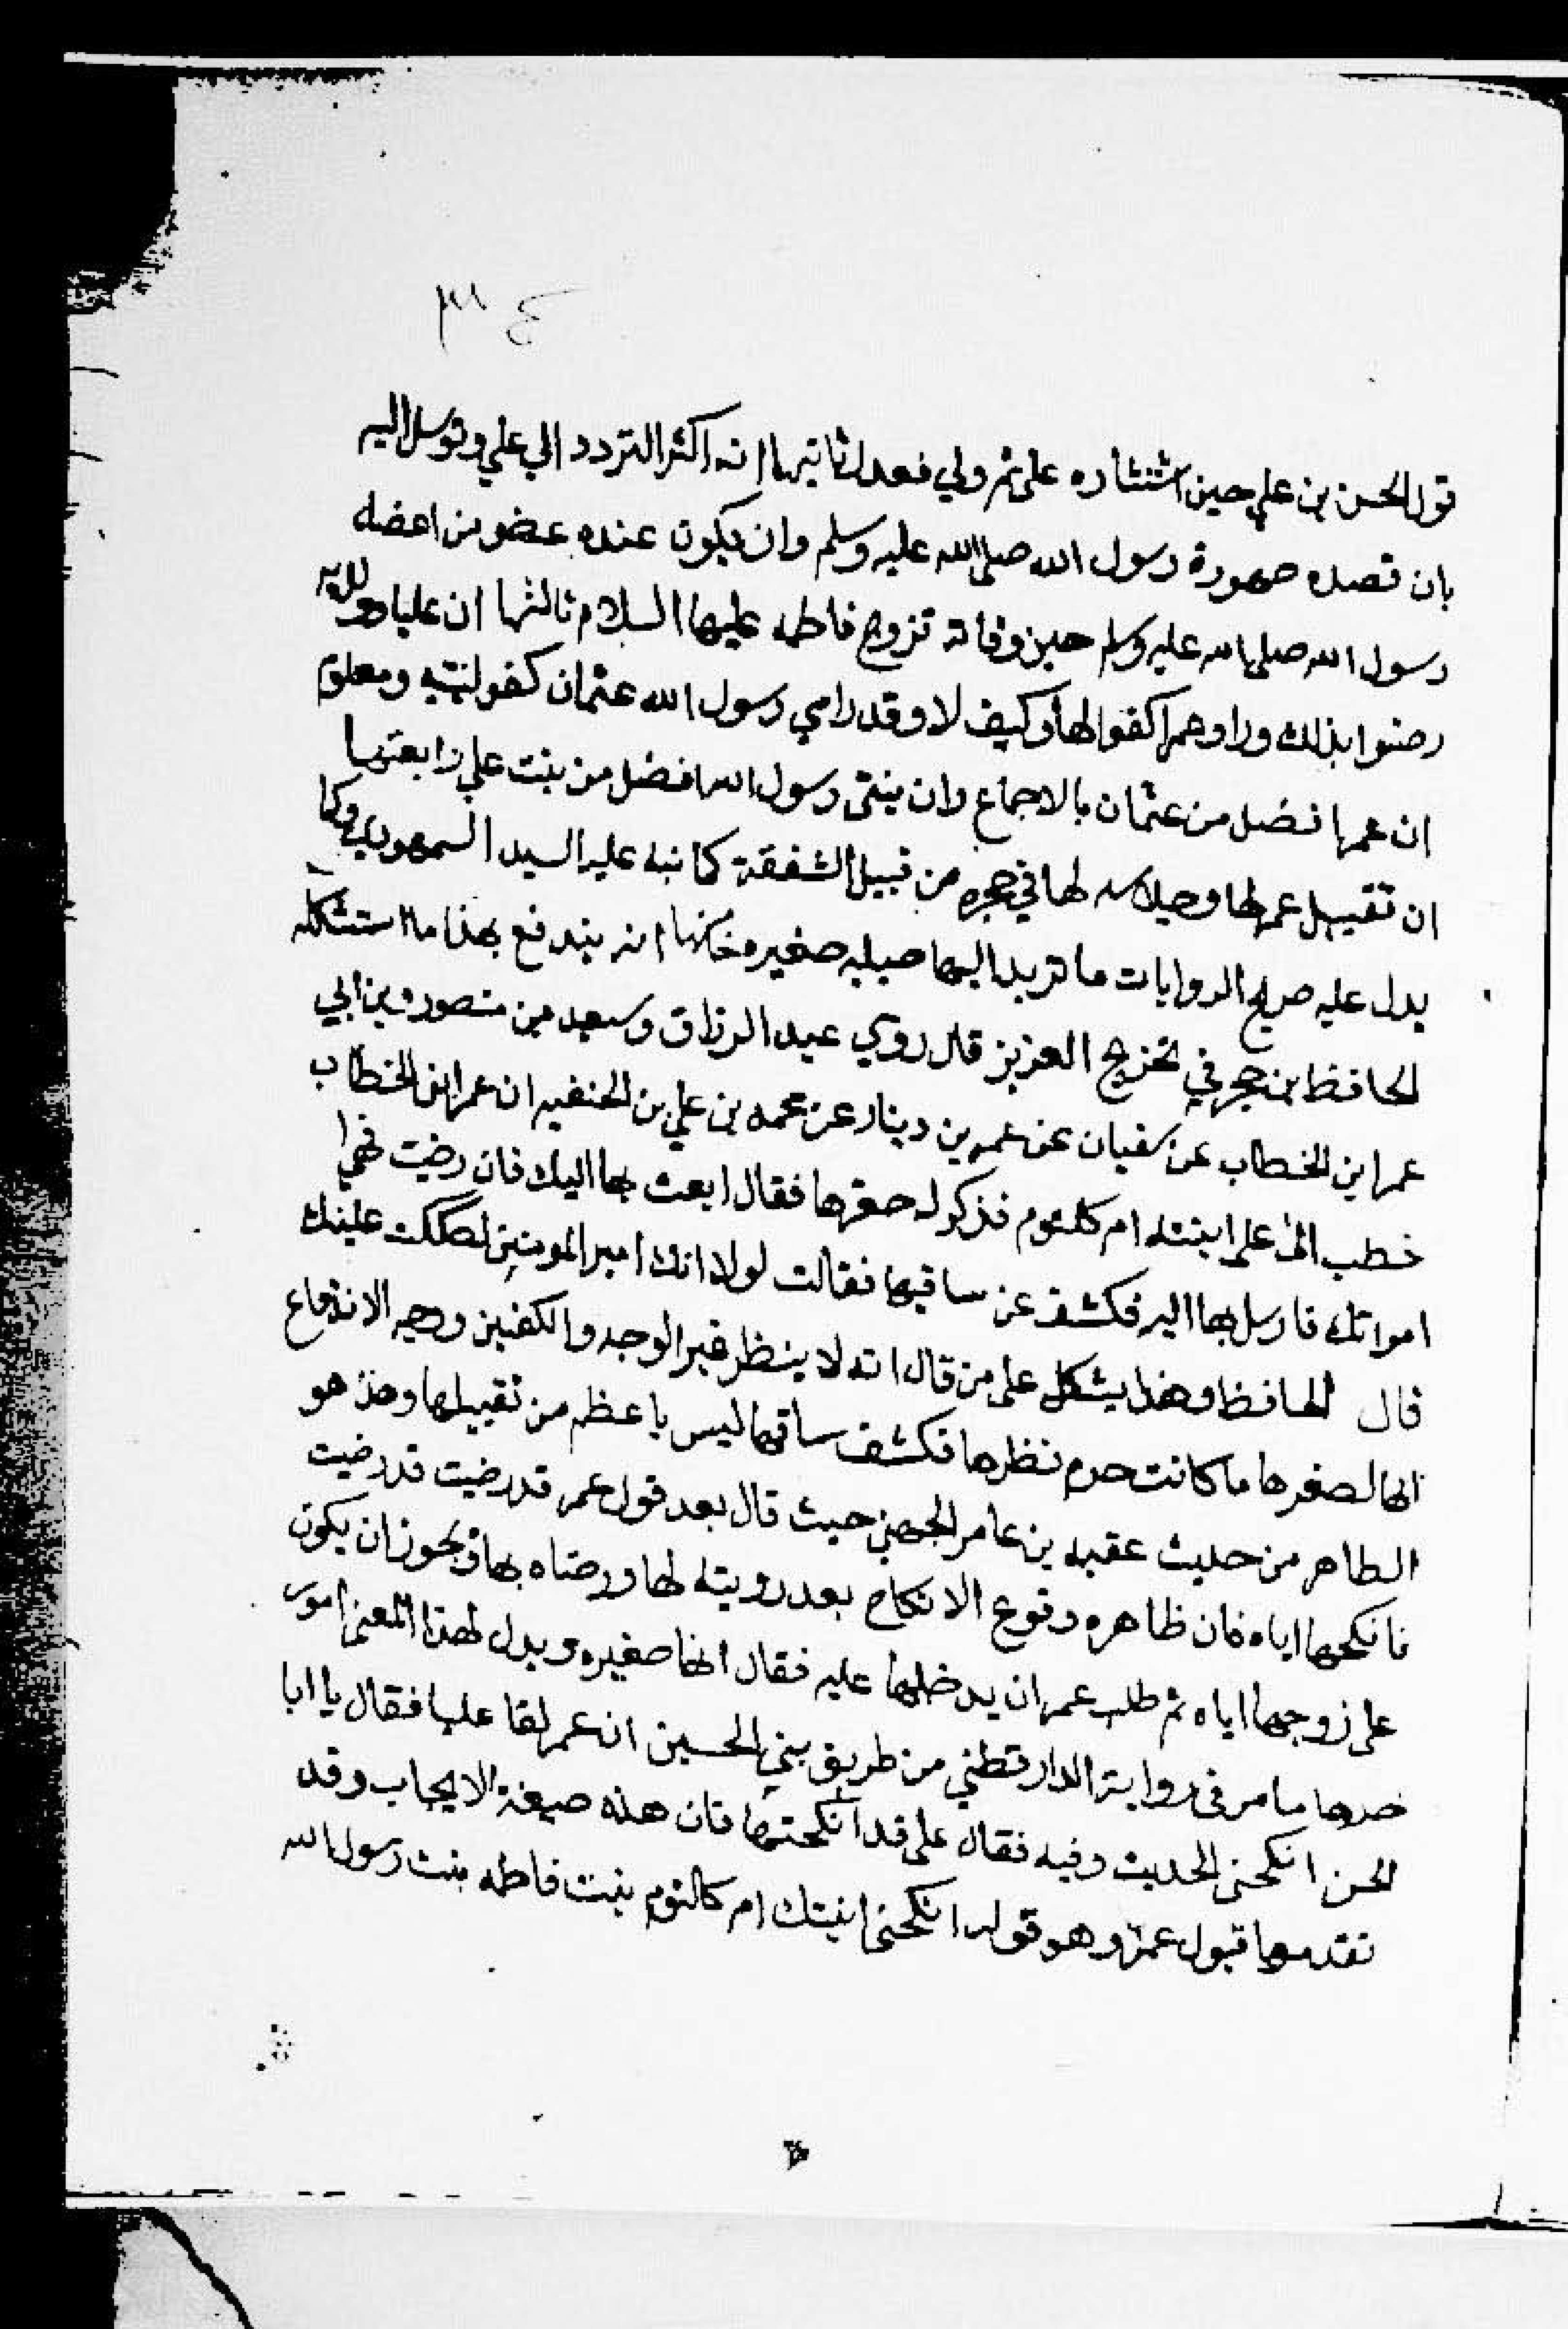 ٣١٤
قول الحسن بن علي حين استشاره علي ثم ولي فعدل ثانيها انه اكثر التردد الي علي وتوسل اليه
بان قصده صهورة رسول الله صلى الله عليه وسلم وان يكون عنده عضو من اعضاء
رسول الله صلى الله عليه وسلم حين وفاته تزوج فاطمه عليها السلام ثالثها ان عليا
رضوا بذلك وراو عمر اكفوا لها وكيف لا وقد رأي رسول الله عثمان كفو لبنتيه ومعلوم
ان عمر افضل من عثمان بالاجماع وان بنتى رسول الله افضل من بنت علي رابعتها
ان تقبيل عمر لها وجلاسه لها في حجره من قبيل الشفقة كما نبه عليه السيد السمهودي وكما
يدل عليه صريح الروايات ما تريد اليها صبيه صغيره خامسها انه يندفع بهذا ما استشكله
الحافظ بن حجر في تخريج العزيز قال روي عبد الرزاق وسعيد بن منصور وبن ابي
عمر ابن الخطاب عن سفيان عن عمر بن دينار عن محمد بن علي بن الحنفيه ان عمر ابن الخطاب
خطب الى على ابنته ام كلثوم فذكر له صغرها فقال ابعث بها اليك فان رضيت فهي
امراتك فارسل بها اليه فكشف عن ساقيها فقالت لولا انك امير المومنين لصككت عينك
قال الحافظ وهذا يشكل على من قال انه لا ينظر غير الوجه والكفين ووجه الاندفاع
انها لصغرها ما كانت حرم نظرها فكشف ساقها ليس باعظم من تقبيلها وهذ هو
الظاهر من حديث عقبه بن عامر الجهني حيث قال بعد قول عمر قد رضيت قد رضيت
فانكحها اياه فان ظاهره وقوع الانكاح بعد رويته لها ورضاه بها ويجوز ان يكون
على زوجها اياه ثم طلب عمر ان يدخلها عليه فقال انها صغيره ويدل لهذا المعنى امور
احدها ما مر فى رواية الدارقطني من طريق بني الحسين ان عمر لقا عليا فقال يا ابا
الحسن انكحنى الحديث وفيه فقال على قد انكحتها فان هذه صيغة الايجاب وقد
تقدمها قبول عمر وهو قوله انكحنى ابنتك ام كالثوم بنت فاطمه بنت رسول الله